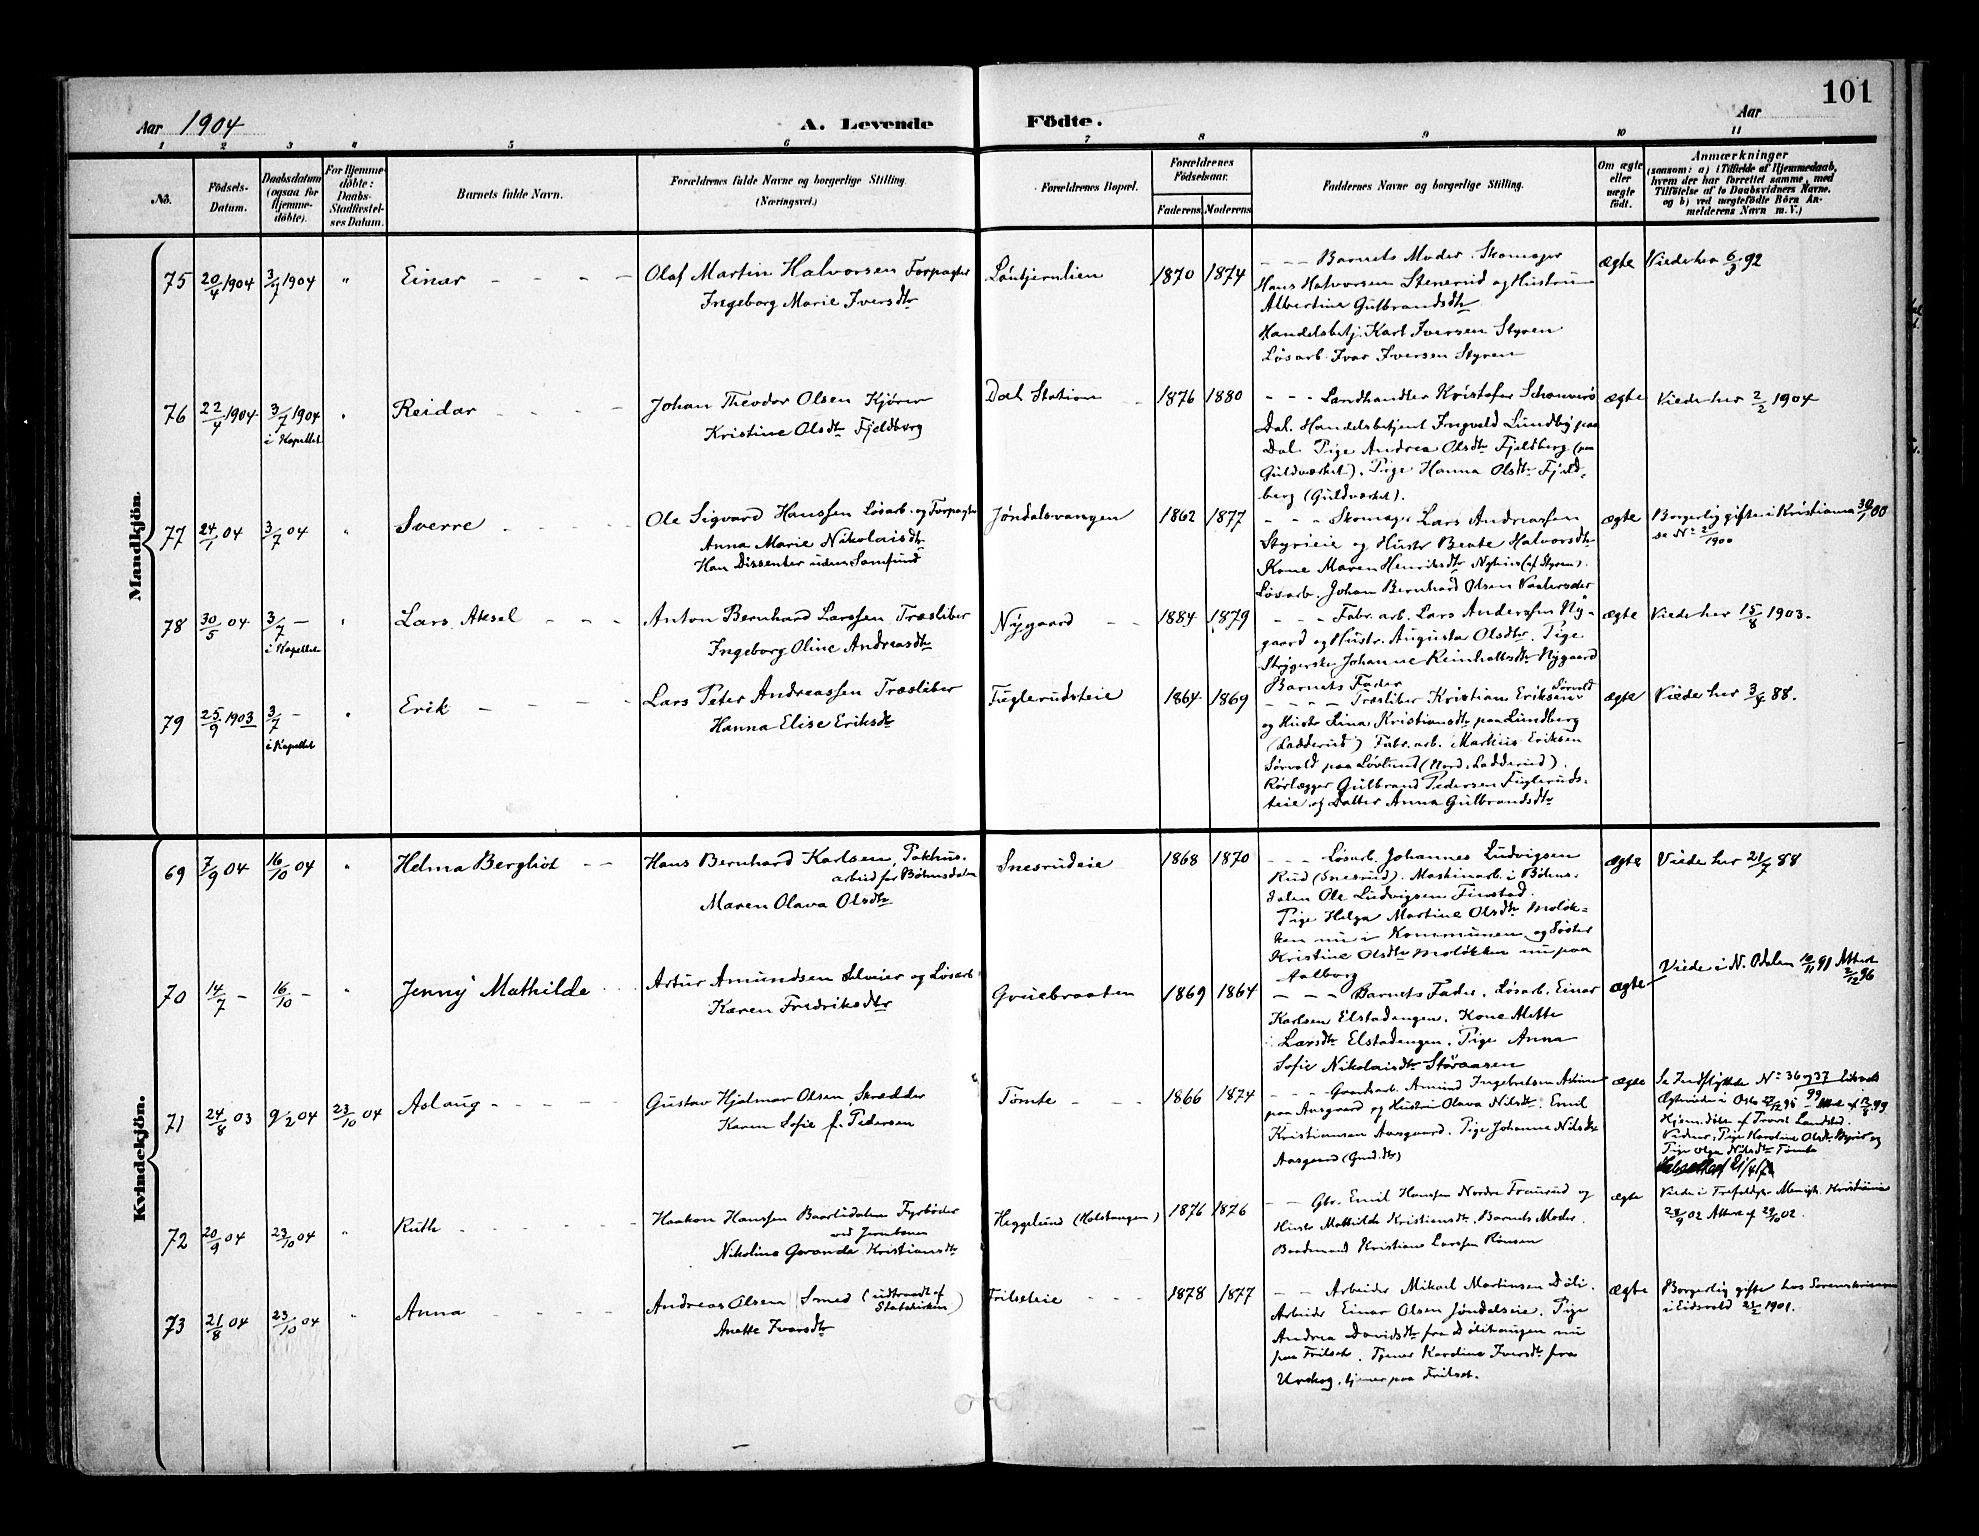 101
Aar 1904
A. Levende
Födte.
Aar
1 2 3 4 5 6 7 8 9 10 11
No.
Födsels-
Datum.
Daabsdatum
(ogsaa for
Hjemme-
döbte).
For Hjemme-
döbte:
Daabs-
Stadfæstel-
ses Datum.
Barnets fulde Navn.
Forældrenes fulde Navne og borgerlige Stilling
(Næringsvei.)
Forældrenes Bopæl.
Forældrenes
Födselsaar.
Faderens Moderens
Faddernes Navne og borgerlige Stilling.
Om ægte
eller
uægte
födt.
Anmærkninger
(saasom: a) i Tilfælde af Hjemmedaab,
hvem der har forrettet samme, med
Tilföielse af to Daabsvidners Navne,
og b) ved uægtefödte Börn An-
melderens Navn m. V.)
Mandkjön.
75 20/4 1904 3/7 1904 " Einar
Olaf Martin Halvorsen Forpagter
Ingeborg Marie Iversdtr
Løntjernlien 1870 1874
Barnets Moder. Skomager
Hans Halvorsen Stenerud og Hustru
Albertine Gulbrandsdtr
Handelsbetj. Karl Iversen Styren
Løsarb. Ivar Iversen Styren
ægte Viede her 6/3 92
76 22/4 1904 3/7 1904 " Reidar
i Kapellet
Johan Theodor Olsen Kjører
Kristine Olsdtr Fjeldberg
Dal Station 1876 1880
Landhandler Kristofer
Dal. Handelsbetjent Ingvald Lundby paa
Dal. Pige Andrea Olsdtr Fjeldberg (paa
Guldværket). Pige Hanna Olsdtr Fjeld-
berg (Guldværket).
ægte Viede her 2/2 1904
77 24/1 04 3/7 04 " Sverre
Ole Sigvard Hanssen Løsarb. og Forpagter
Anna Marie Nikolaisdtr
Han Dissenter uden Samfund
Jøndalsvangen 1862 1877
Skomager Lars Andreassen
Styrieie og Hustr Beate Halvorsdtr
Kone Maren Henriksdtr (af Styren).
Løsarb. Johan Bernhard Olsen
ægte Borgerlig gifte i Kristiania 30/1 00
se No
1900
78 30/5 04 3/7 — " Lars Aksel
i Kapellet
Anton Bernhard Larssen Træsliber
Ingeborg Oline Andreasdtr
Nygaard 1884 1879
Fabr. arb. Lars Anderssen Ny-
gaard og Hustr. Augusta Olsdtr. Pige
Strygerske Johanne Reinholtsdtr Nygaard
Barnets Fader
ægte Viede her 15/8 1903.
79 25/9 1903 3/7 — " Erik
i Kapellet
Lars Peter Andreassen Træsliber
Hanna Elise Eriksdtr
Fuglerudseie 1864 1869
Træsliber Kristian Eriksen Sørvald
og Hustr Lina Kristiansdtr paa Lundberg
(Ladderud) Fabr. arb. Markus Eriksen
Sørvald paa Løvlund (Nord. Ladderud).
Rørlægger Gulbrand Pedersen Fuglerud-
seie og Datter Anna Gulbrandsdtr
ægte Viede her 3/4 88.
Kvindekjön.
69 7/9 04 16/10 04 " Helma Bergliot
Hans Bernhard Karlsen, Pakhus-
arbeid for Bøhnsdalen
Maren Olava Olsdtr
Snesrudeie 1868 1870
Løsarb. Johannes Ludvigsen
Rud (Snesrud). Maskinarb. i Bøhns-
dalen Ole Ludvigsen Finstad.
Pige Helga Martine Olsdtr Moløk-
ken nu i Kommunen og Søster
Kristine Olsdtr Moløkken nu paa
Aalborg
ægte Viede her 21/7 88
70 14/7 — 16/10 — " Jenny Mathilde
Artur Amundsen Selveier og Løsarb
Karen Fredriksdtr
Gruebraaten 1869 1864
Barnets Fader. Løsarb. Einar
Karlsen Elstadengen. Kone Alette
Larsdtr Elstadengen. Pige Anna
Sofie Nikolaisdtr Støraasen
ægte Viede i N. Odalen 10/11 91 Attest
2/12 96
71 24/8 03 9/2 04 23/10 04 Aslaug
Gustav Hjalmar Olsen, Skrædder
Karen Sofie f. Pedersen
Tømte 1866 1874
Gaardarb. Amund Ingebretsen
paa Aasgaard og Hustru Olava Nilsdtr. Emil
Kristiansen Aasgaard. Pige Johanne Nilsdtr
Aasgaard
ægte Se Indflyttede No 36 og 37
99
Hjem. døbt af Provst Landstad.
Vidner: Pige Karoline Olsdtr og
Pige Olga Nilsdtr Tømte
72 20/9 04 23/10 04 " Ruth
Haakon Hanssen Baarlidalen Fyrbøder
ved Jernbanen
Nikoline Geranda Kristiansdtr
Heggelund (Holstangen) 1876 1876
Gbr. Emil Hanssen Nordre Traurud og
Hustr Mathilde Kristiansdtr. Barnets Moder.
Baadsmand Kristian Larssen
ægte Viede i Trefoldigh. Menigh. Kristiania
28/9 02 Attest af 29/10 02.
73 21/8 04 23/10 04 " Anna
Andreas Olsen Smed (udtraadt af
Statskirken)
Anette Ivarsdtr
Frilseteie 1878 1877
Arbeider Mikael Martinsen Døli.
Arbeider Einar Olsen Jøndalseie. Pige
Andrea Davidsdtr fra Dølihaugen nu
paa Frilset. Tjener Karoline Iversdtr fra
Urskog, tjener paa Frilset.
ægte Borgerlig gifte hos Sorenskriveren
i Eidsvold 23/2 1901.